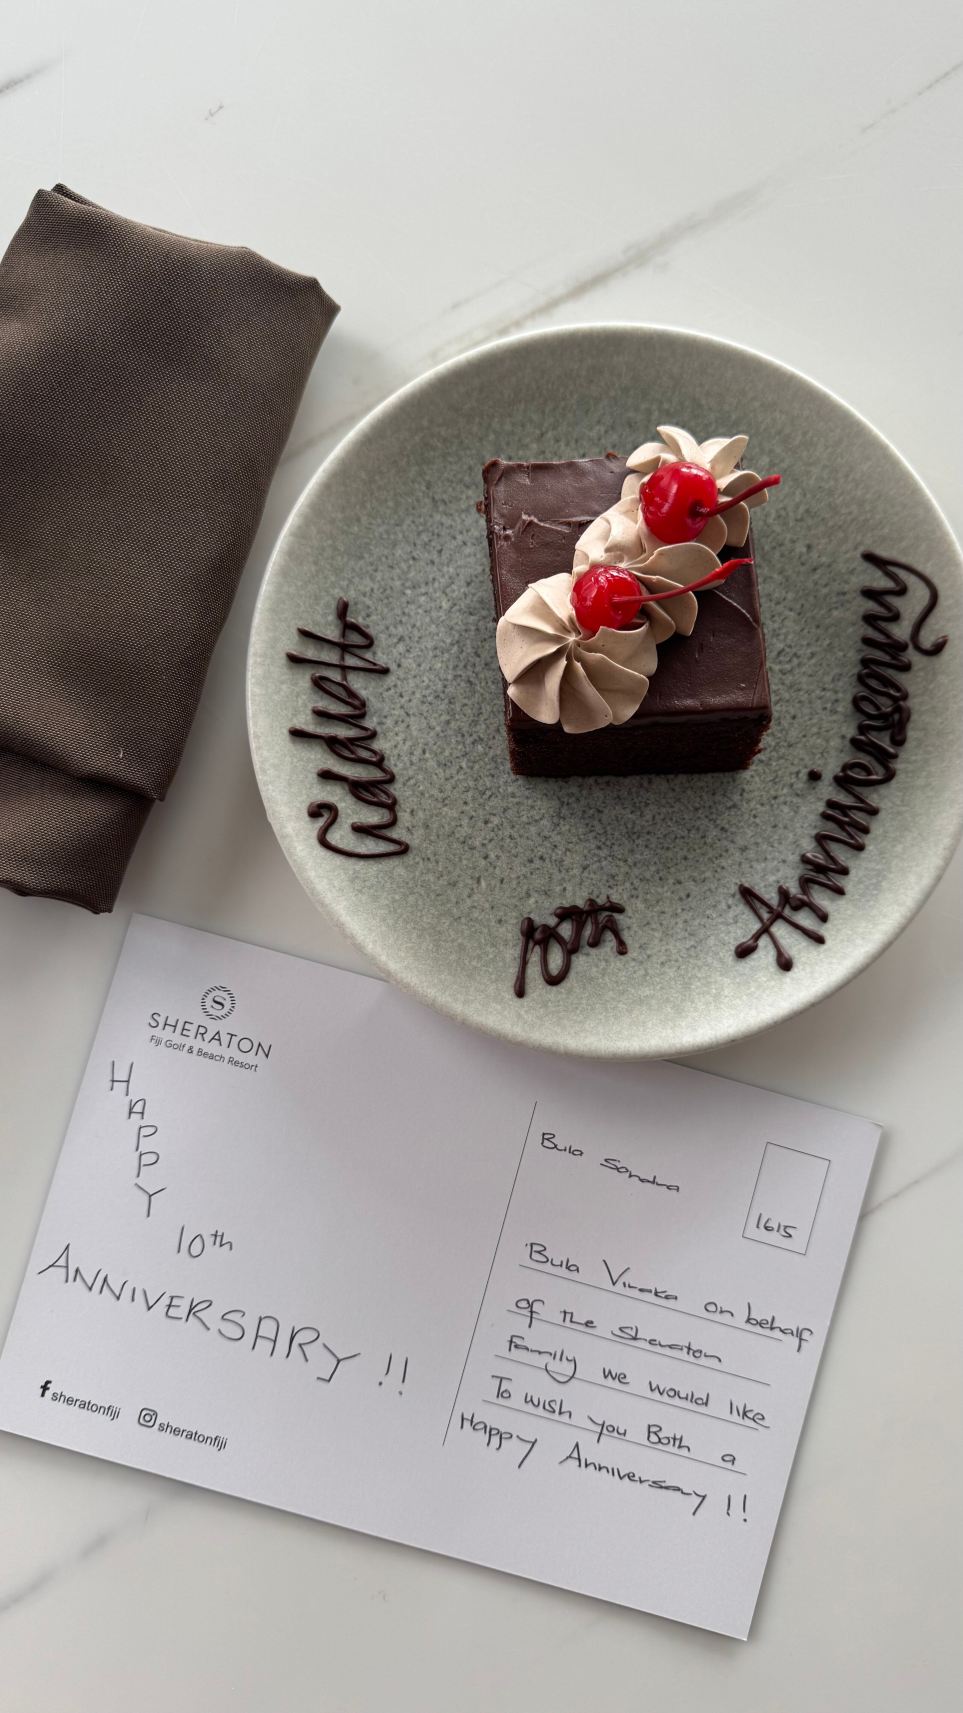 Happy
10th
Anniversary
S
SHERATON
Fiji Golf & Beach Resort
HAPPY
10th
ANNIVERSARY !!
sheratonfiji
sheratonfiji
Bula Sandra
1615
Bula Vinaka on behalf
of the Sheraton
Family we would like
To wish you Both a
Happy Anniversay !!